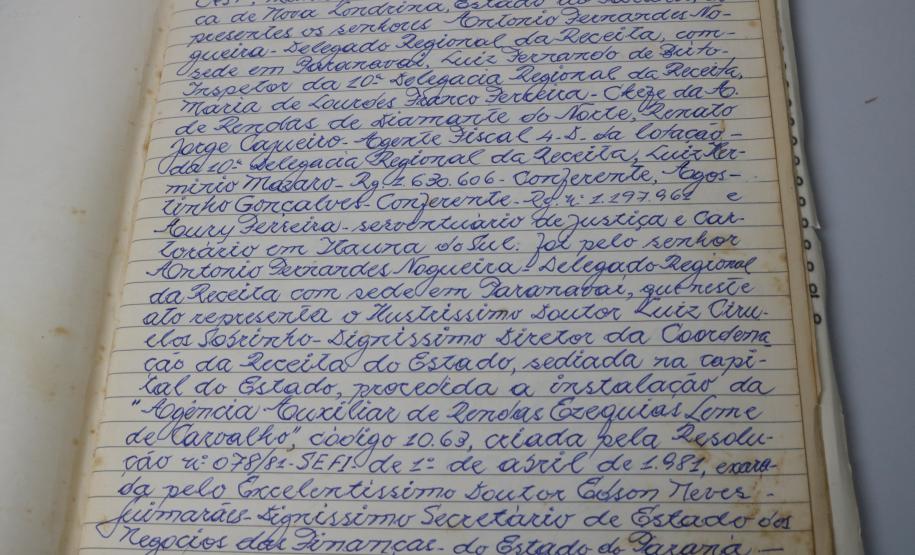 ca de Nova Londrina, Estado do
presentes os senhores Antonio Fernandes No-
gueira- Delegado Regional da Receita, com-
sede em Paranavaí, Luiz Fernando de Brito-
Inspetor da 10ª Delegacia Regional da Receita,
Maria de Lourdes Franco Ferreira- Chefe da A.
de Rendas de Diamante do Norte, Renato
Jorge Cajueiro- Agente Fiscal 4-D. da lotação-
da 10ª Delegacia Regional da Receita, Luiz Her-
minio Mazaro- Rg 1.630.606- Conferente, Agos-
tinho Gonçalves- Conferente- Rg nº 1.197.961 e
Aury Ferreira- serventuário de justiça e Car-
torário em Itaúna do Sul. foi pelo senhor
Antonio Fernandes Nogueira- Delegado Regional
da Receita com sede em Paranavaí, que neste
ato representa o Ilustrissimo Doutor Luiz Ciru-
elos Sobrinho- Dignissimo Diretor da Coordena
ção da Receita do Estado, sediada na capi-
tal do Estado, procedida a instalação da
"Agência Auxiliar de Rendas Ezequias Leme
de Carvalho", código 10.63, criada pela Resolu-
ção nº 078/81-SEFI- de 1º de abril de 1.981, exara-
da pelo Excelentissimo Doutor Edson Neves-
Guimarães- Dignissimo Secretário de Estado dos
Negócios das Finanças- do Estado do Paraná-